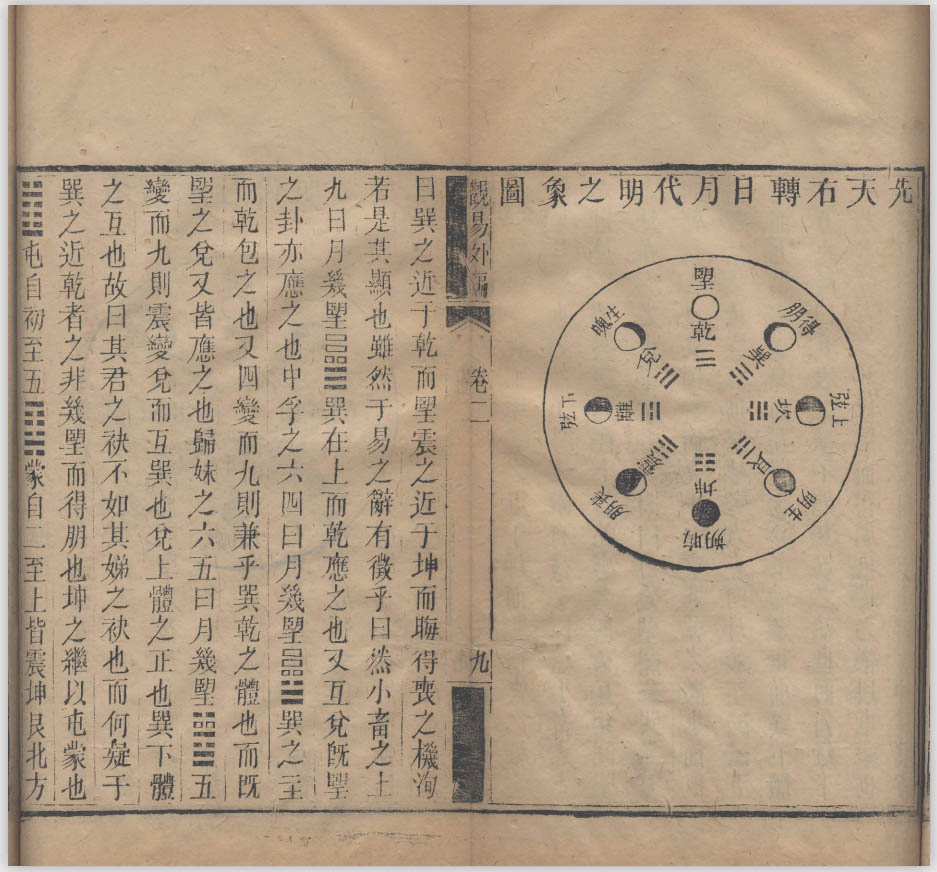 先天右轉日月代明之象圖
朢
乾
得朋
巽
上弦
坎
生明
艮
晦朔
坤
喪朋
震
下弦
離
生魄
兌
觀易外編
卷二
九
曰巽之近于乾而朢震之近于坤而晦得喪之機洵
若是其顯也雖然于易之辭有徵乎曰然小畜之上
九曰月幾朢䷈巽在上而乾應之也又互兌既朢
之卦亦應之也中孚之六四曰月幾朢䷼巽之主
而乾包之也又四變而九則兼乎巽乾之體也而既
朢之兌又皆應之也歸妹之六五曰月幾朢䷵五
變而九則震變兌而互巽也兌上體之正也巽下體
之互也故曰其君之袂不如其娣之袂也而何疑于
巽之近乾者之非幾朢而得朋也坤之繼以屯蒙也
䷂屯自初至五䷃蒙自二至上皆震坤艮北方